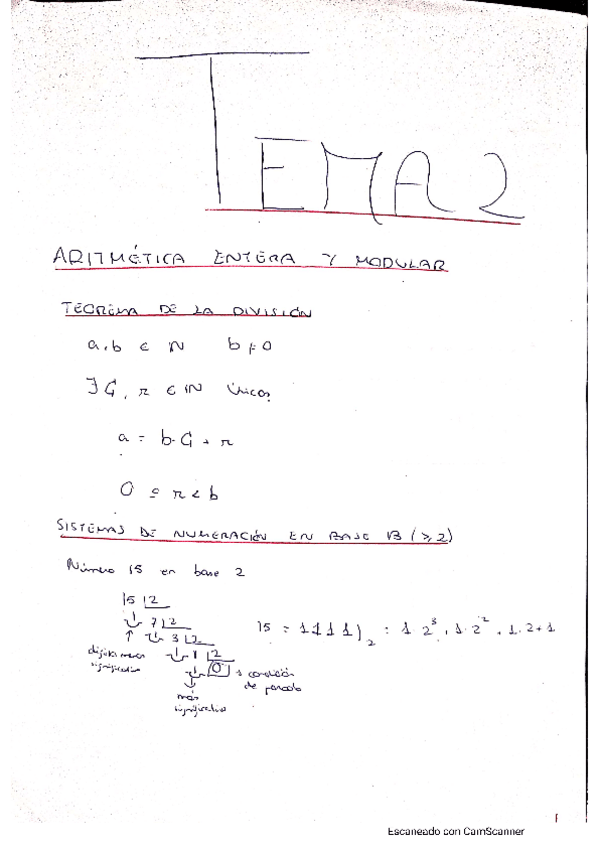 TEMA 2
ARITMÉTICA ENTERA Y MODULAR
TEOREMA DE LA DIVISIÓN
a, b ∈ N b ≠ 0
∃ G, r ∈ IN únicos
a = b·G + r
0 ≤ r < b
SISTEMAS DE NUMERACIÓN EN BASE B (≥2)
Número 15 en base 2
15 | 2
1 7 | 2
1 3 | 2
1 1 | 2
1 0
dígito menos significativo
más significativo
condición de parada
15 = 1111)₂ = 1·2³ + 1·2² + 1·2 + 1
1
Escaneado con CamScanner